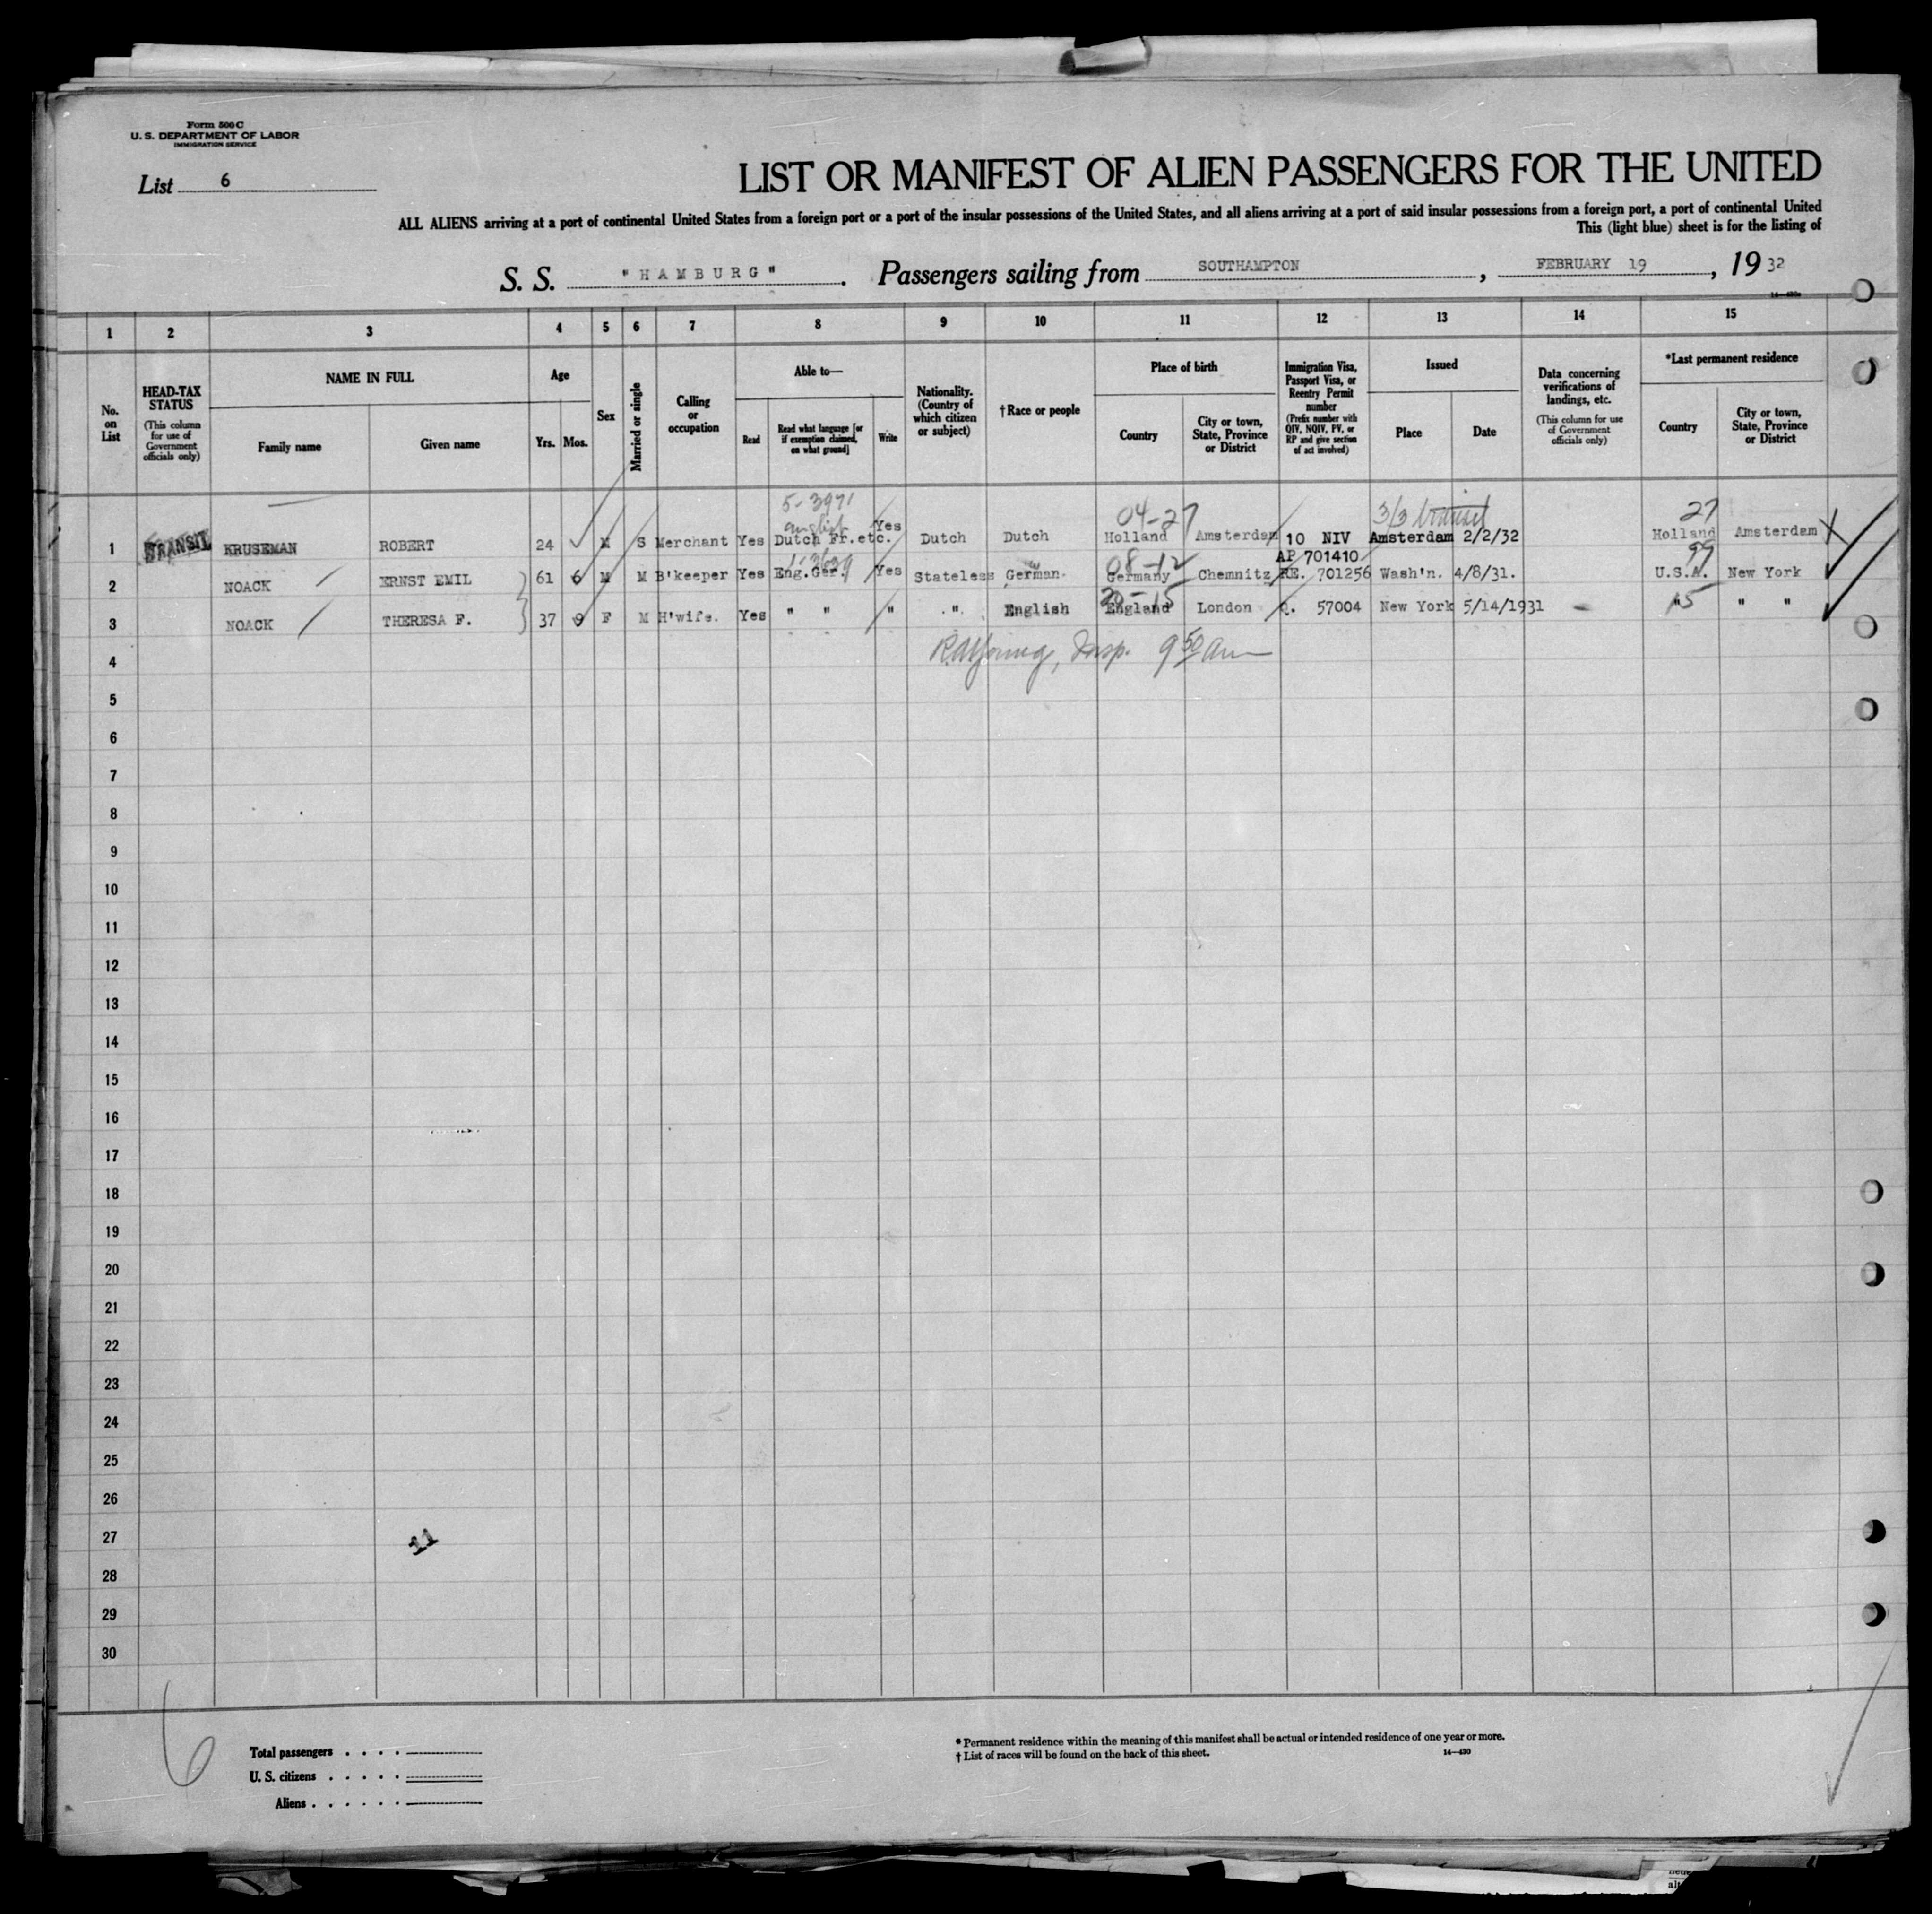 Form 500 C
U. S. DEPARTMENT OF LABOR
IMMIGRATION SERVICE
List 6
LIST OR MANIFEST OF ALIEN PASSENGERS FOR THE UNITED
ALL ALIENS arriving at a port of continental United States from a foreign port or a port of the insular possessions of the United States, and all aliens arriving at a port of said insular possessions from a foreign port, a port of continental United
This (light blue) sheet is for the listing of
S. S. "HAMBURG". Passengers sailing from SOUTHAMPTON, FEBRUARY 19, 19 32
1 2 3 4 5 6 7 8 9 10 11 12 13 14 15
No. on List
HEAD-TAX STATUS (This column for use of Government officials only)
NAME IN FULL
Family name
Given name
Age
Yrs. Mos.
Sex
Married or single
Calling or occupation
Able to—
Read
Read what language [or if exemption claimed, on what ground]
Write
Nationality. (Country of which citizen or subject)
†Race or people
Place of birth
Country
City or town, State, Province or District
Immigration Visa, Passport Visa, or Reentry Permit number (Prefix number with QIV, NQIV, PV, or RP and give section of act involved)
Issued
Place
Date
Data concerning verifications of landings, etc. (This column for use of Government officials only)
*Last permanent residence
Country
City or town, State, Province or District
5-3971 04-27 3/3 27
English
1 TRANSIT KRUSEMAN ROBERT 24 M S Merchant Yes Dutch Fr.etc. Yes Dutch Dutch Holland Amsterdam 10 NIV Amsterdam 2/2/32 Holland Amsterdam
08-12 AP 701410 99
2 NOACK ERNST EMIL 61 6 M M B'keeper Yes Eng.Ger. Yes Stateless German. Germany Chemnitz RE. 701256 Wash'n. 4/8/31. U.S.A. New York
3 NOACK THERESA F. 37 9 F M H'wife. Yes " " " " English England London Q. 57004 New York 5/14/1931 " " "
4 Insp. 9 50 am
5
6
7
8
9
10
11
12
13
14
15
16
17
18
19
20
21
22
23
24
25
26
27
11
28
29
30
6
Total passengers . . . .
U. S. citizens . . . . .
Aliens . . . . . .
* Permanent residence within the meaning of this manifest shall be actual or intended residence of one year or more.
† List of races will be found on the back of this sheet.
14—430